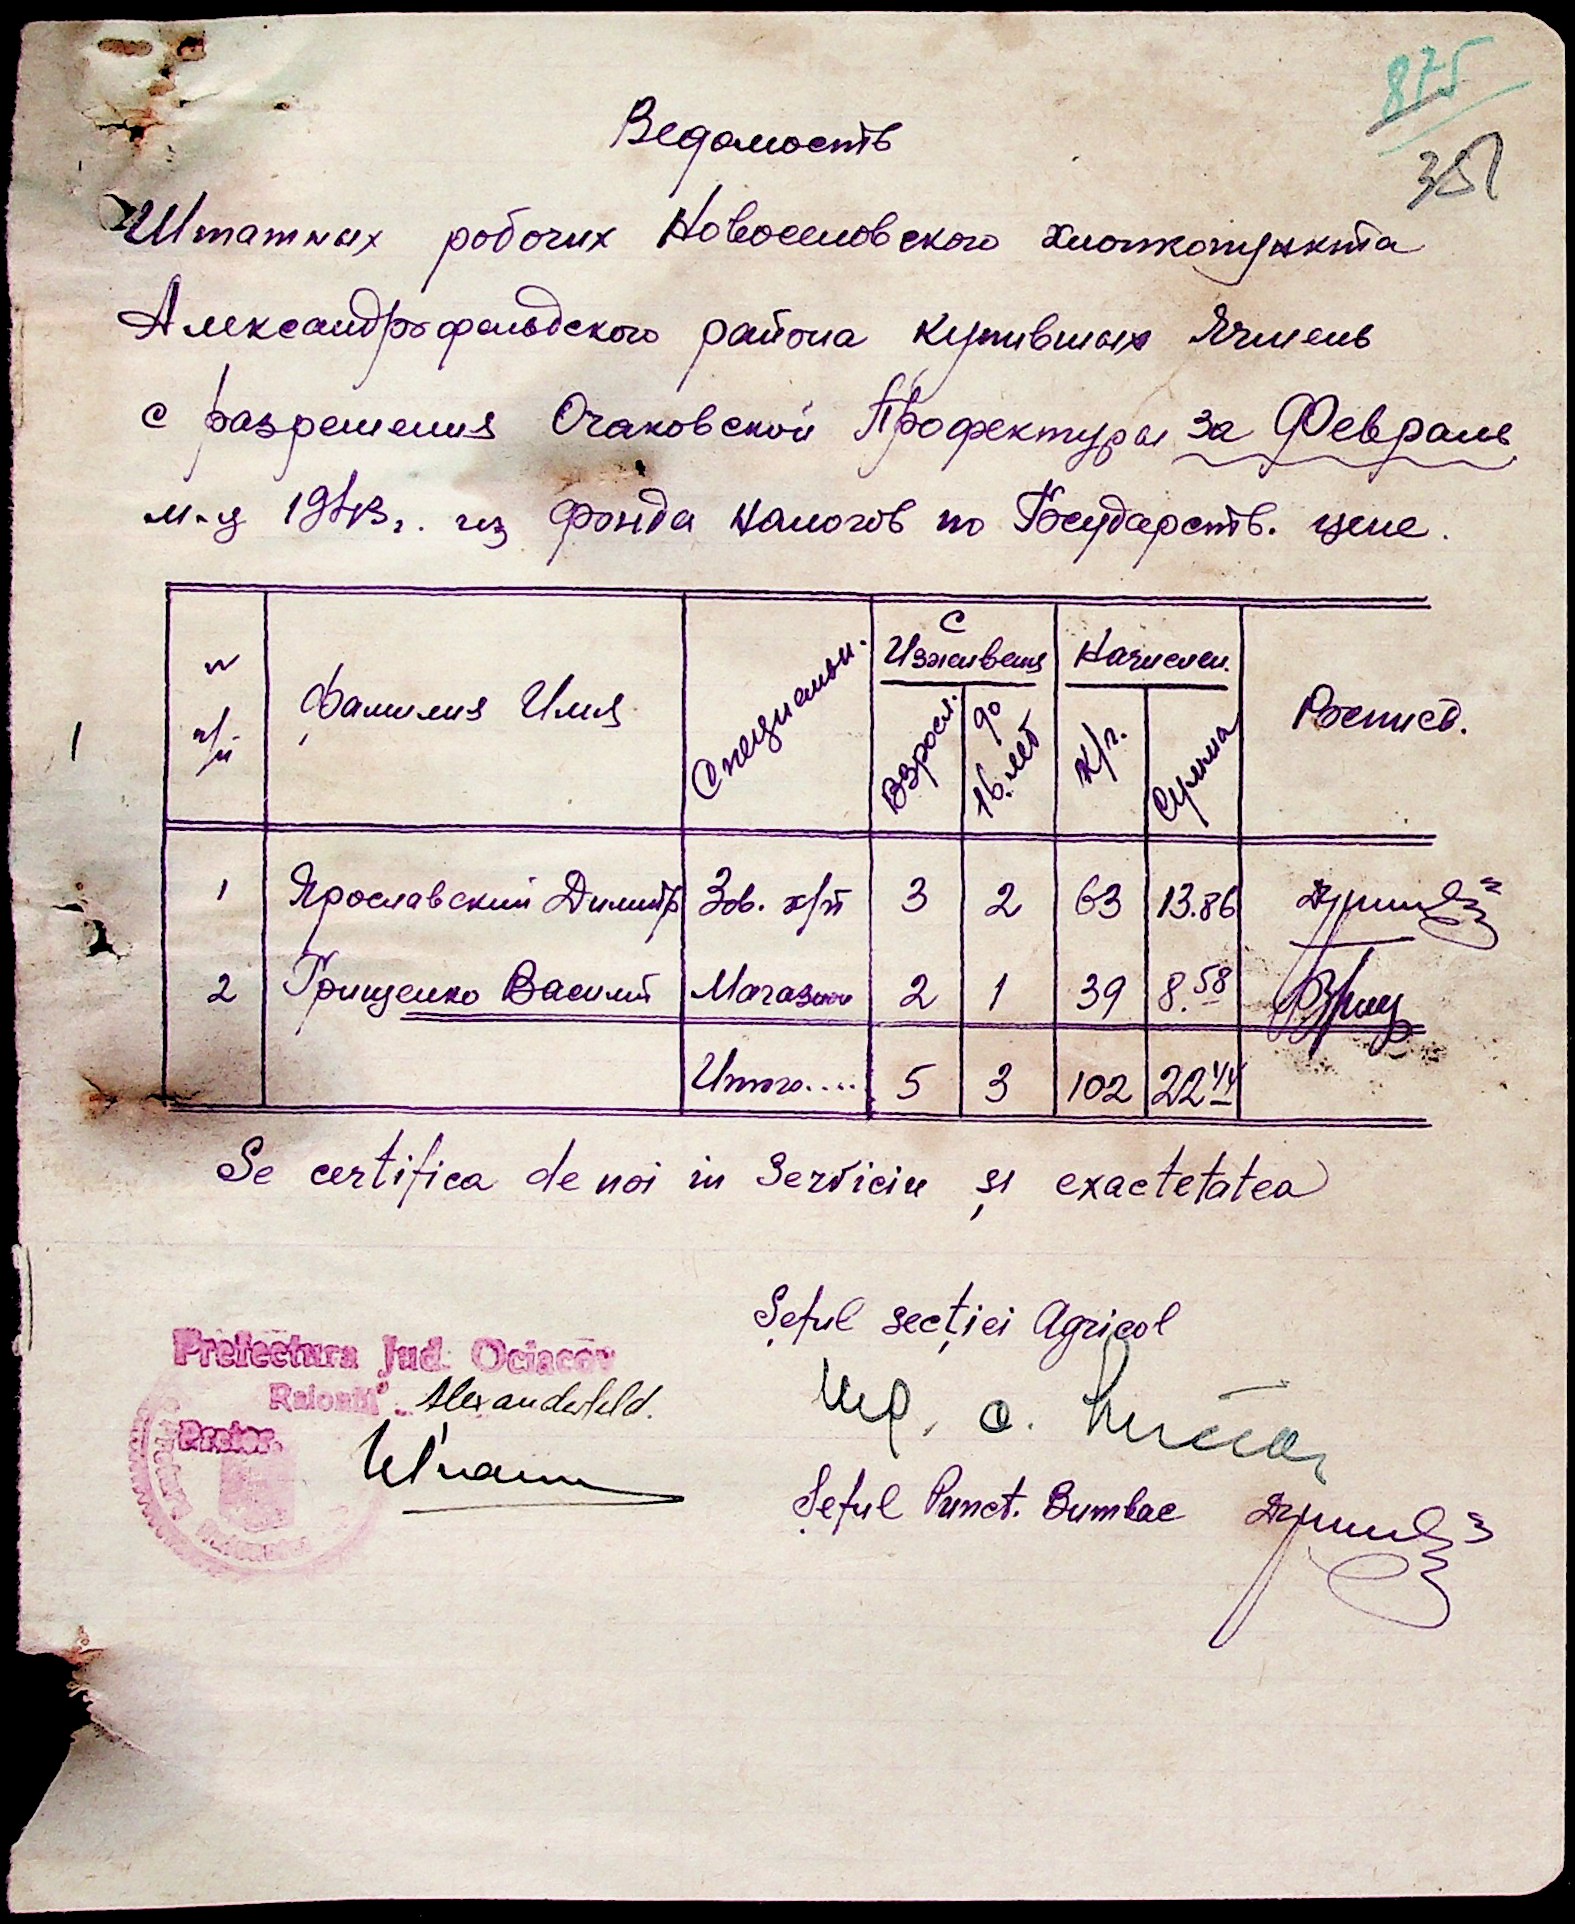 875
351
Ведомость
Штатных робочих Новоселовского хлопкопункта
Александрофельдского района купивших Ячмень
с разрешения Очаковской Профектуры за Февраль
м-ц 1943г. из фонда налогов по Государств. цене.
№ п/п | Фамилия Имя | Специальн. | С Иждивения | Начислен. | Роспись.
Взросл. | до 16. лет | к/г. | Сумма
1 | Ярославский Димитр | Зав. х/п | 3 | 2 | 63 | 13.86
2 | Грищенко Василий | Магазин | 2 | 1 | 39 | 8.58
Итого.... | 5 | 3 | 102 | 22 44
Se certifica de noi in Serviciu și exactetatea
Șeful secției Agricol
Prefectura Jud. Ociacov
Raionul Alexanderfeld.
Pretor.
Ing.
Șeful Punct. Bumbac